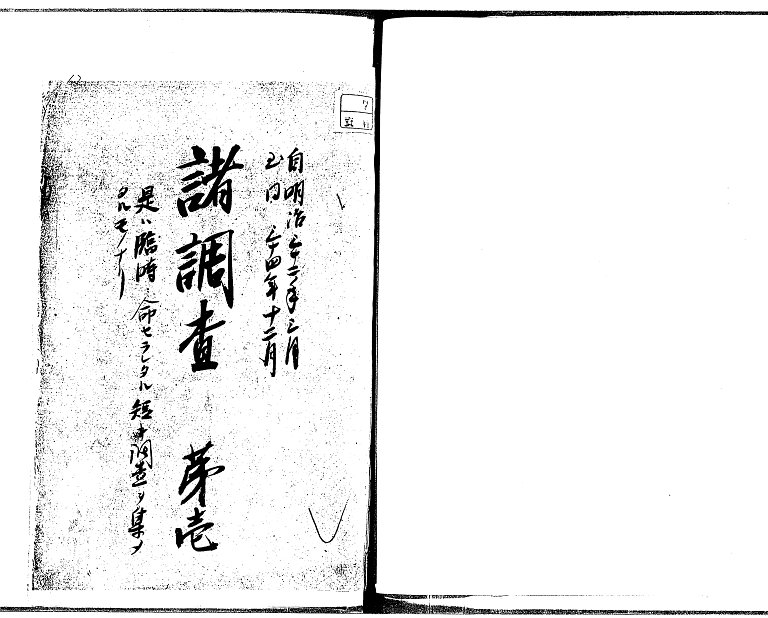 自明治三十二年三月
至同 三十四年十二月
諸調査 第壱
是ハ臨時命セラレタル短キ調査ヲ集メ
タルモノナリ
7